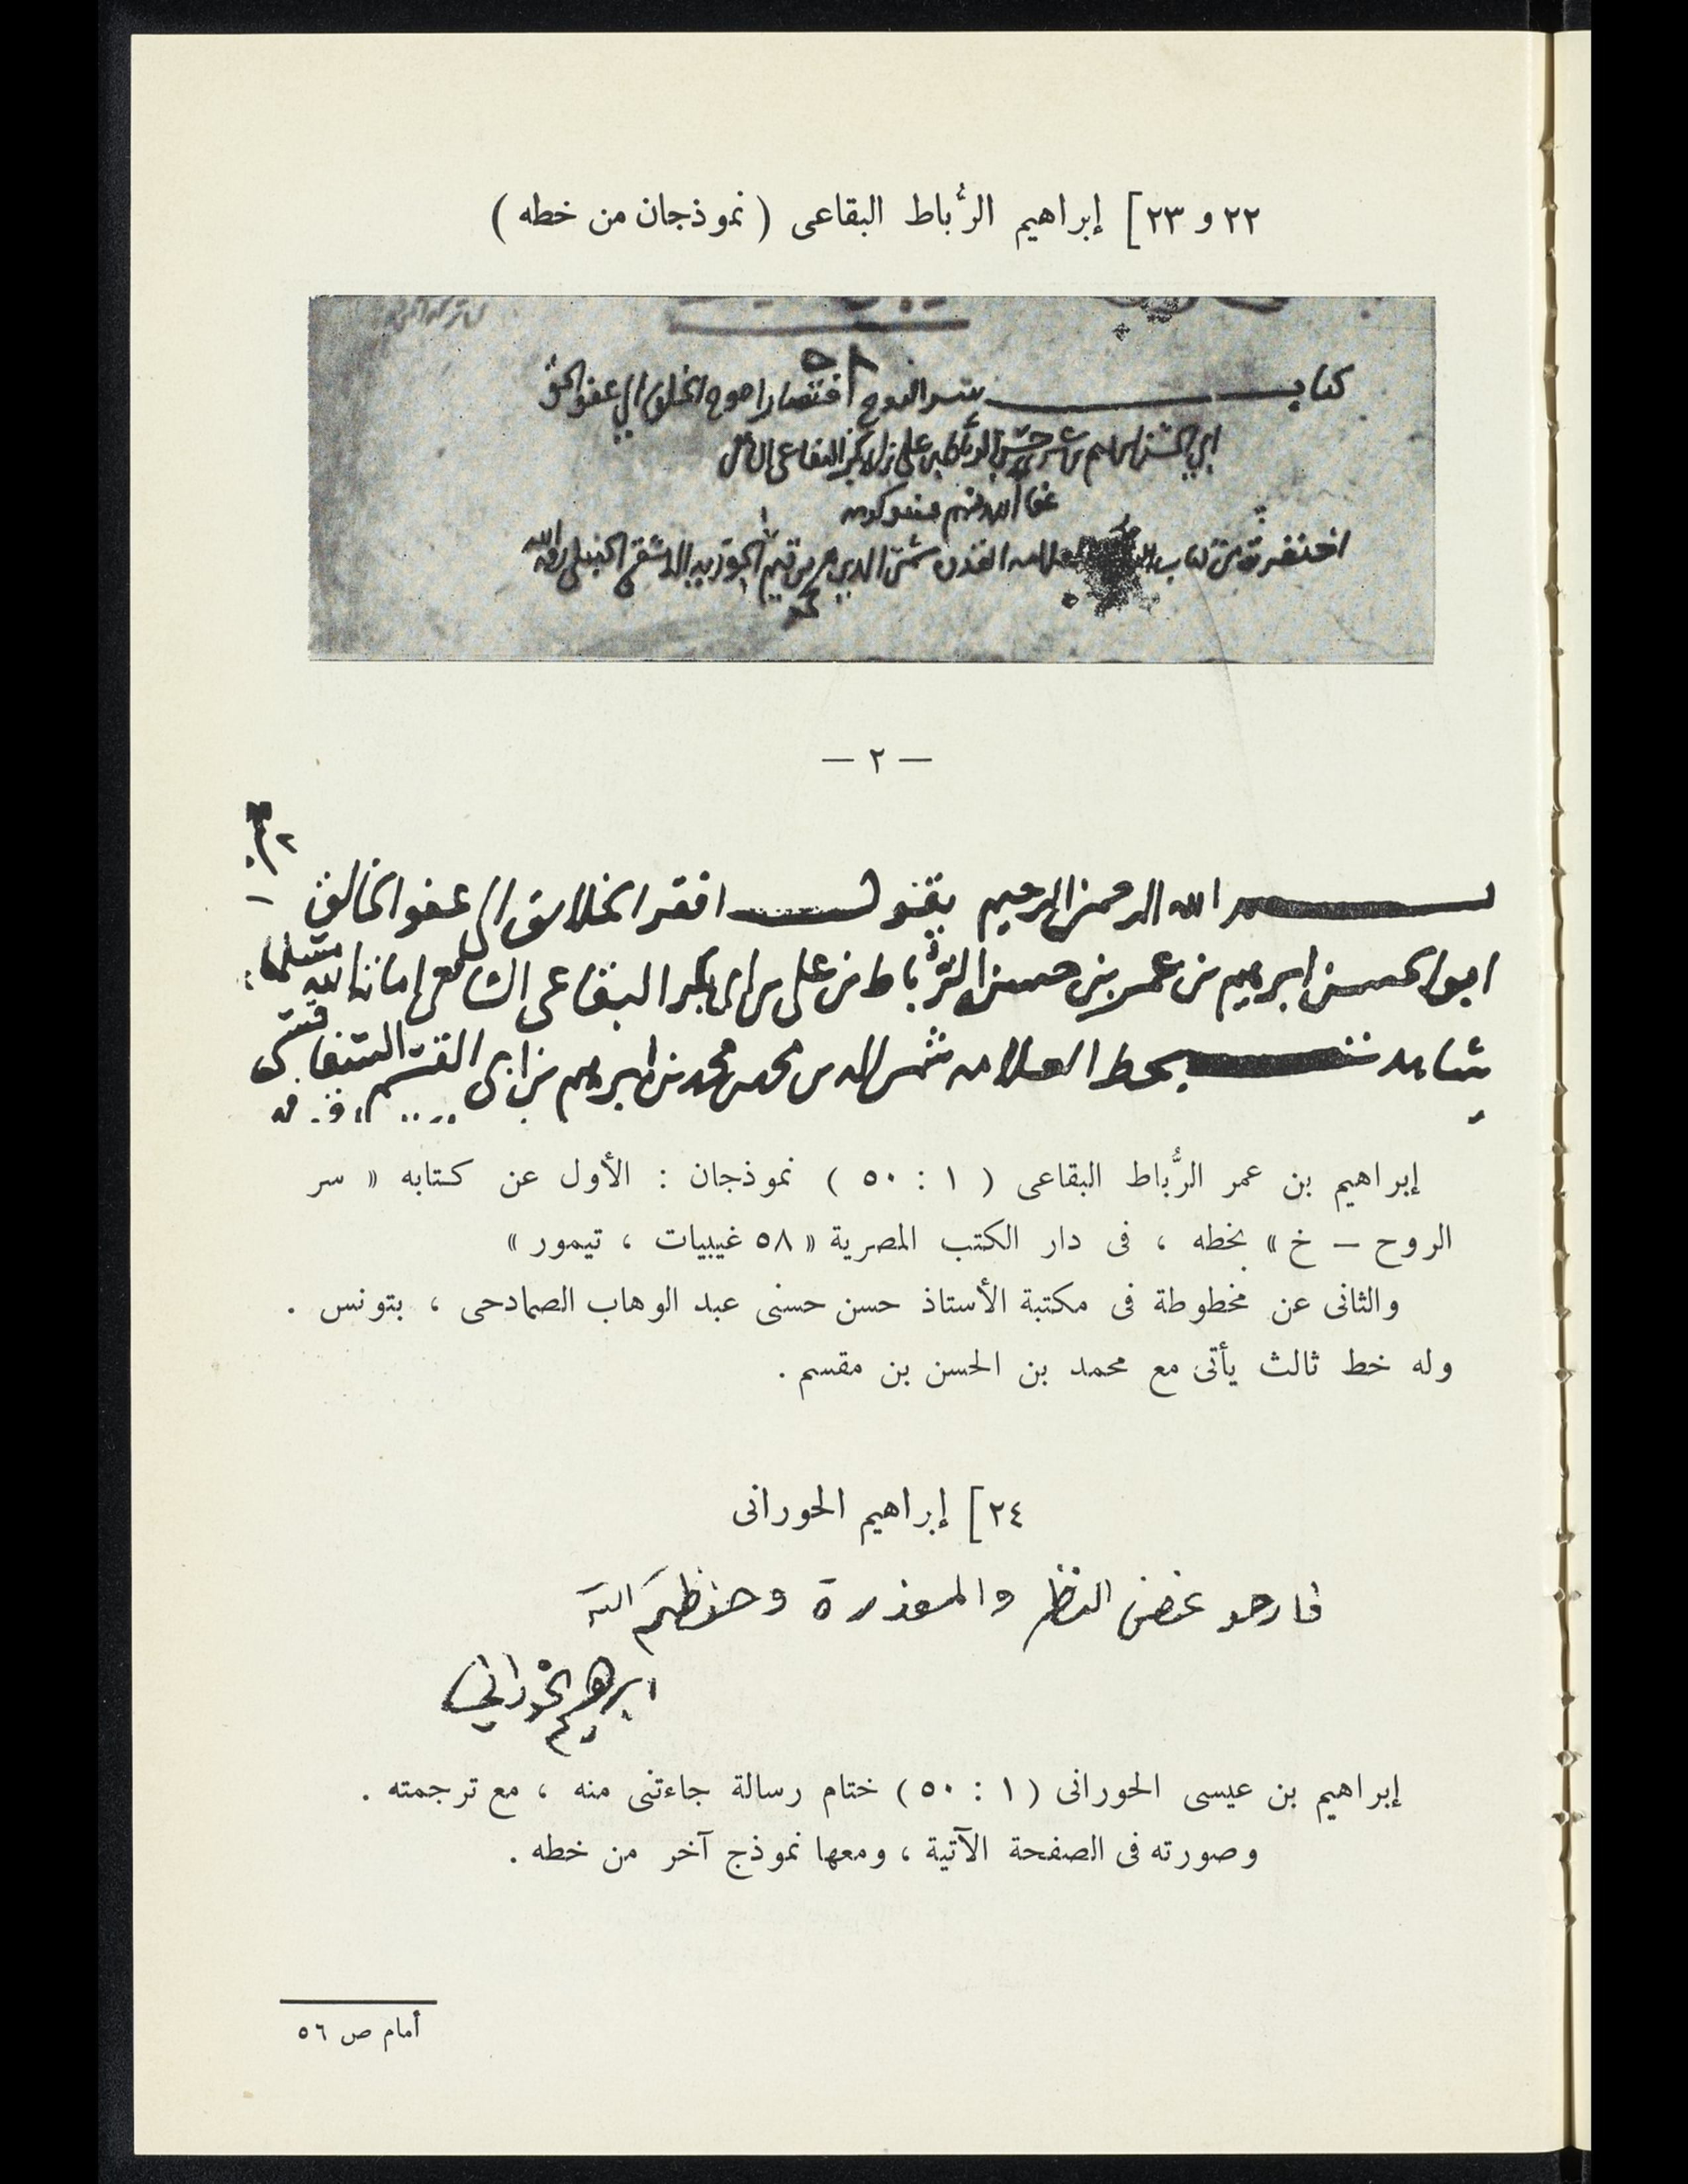 ٢٢ و ٢٣] إبراهيم الرُّباط البقاعى ( نموذجان من خطه )
كتاب سر الروح اختصار احوج الخلق الى عفو الحق
ابي الحسن ابراهيم بن عمر بن حسن الرباط بن علي بن ابي بكر البقاعي الشافعي
عفا الله عنهم
اختصرته من كتاب العلامه القدوه شمس الدين محمد بن قيم الجوزيه الدمشقي الحنبلي رحمه الله
— ٢ —
بسم الله الرحمن الرحيم يقول افقر الخلايق الى عفو الخالق
ابو الحسن ابرهيم بن عمر بن حسن الرُّباط بن على بن ابى بكر البقاعى الشافعى اماته الله مسلما
شاهدت بخط العلامه شمس الدين محمد بن محمد بن ابرهيم بن ابى القسم السفاقسى
إبراهيم بن عمر الرُّباط البقاعى ( ١ : ٥٠ ) نموذجان : الأول عن كتابه « سر
الروح — خ » بخطه ، فى دار الكتب المصرية « ٥٨ غيبيات ، تيمور »
والثانى عن مخطوطة فى مكتبة الأستاذ حسن حسنى عبد الوهاب الصمادحى ، بتونس .
وله خط ثالث يأتى مع محمد بن الحسن بن مقسم .
٢٤] إبراهيم الحورانى
فارجو غض النظر والمعذرة وحفظكم الله
ابرهيم الحوراني
إبراهيم بن عيسى الحورانى ( ١ : ٥٠ ) ختام رسالة جاءتنى منه ، مع ترجمته .
وصورته فى الصفحة الآتية ، ومعها نموذج آخر من خطه .
أمام ص ٥٦